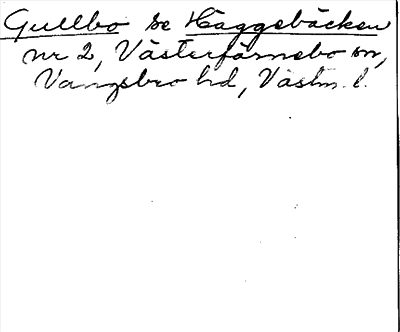 Gullbo se Häggebäcken
nr 2, Västerfärnebo sn,
Vangsbro hd, Västm. l.